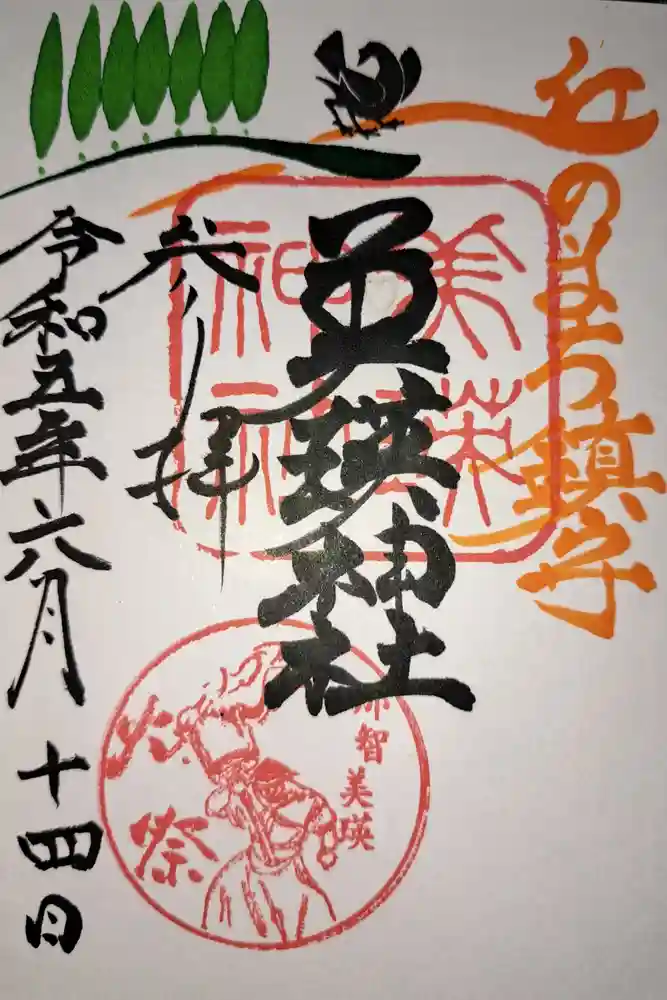 丘のまち鎮守
美瑛神社
参拝
令和五年六月十四日
那智美瑛
火祭